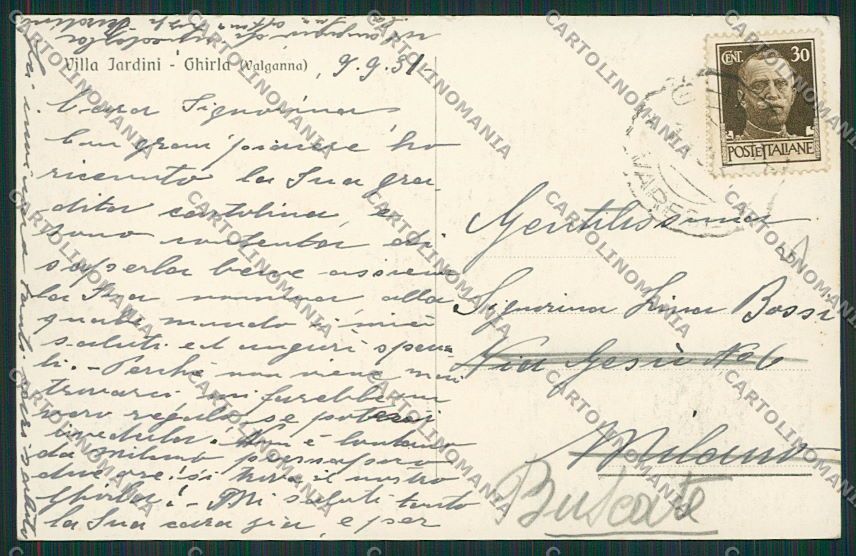 Villa Iardini - Ghirla (Valganna)
9.9.31
Cara Signorina
Con gran piacere ho
ricevuto la Sua gra-
dita cartolina, e
sono contenta di
saperla bene assieme
la Sua mamma alla
quale mando i miei
saluti ed auguri
-Perché non viene mai
trovarci mi farebbe un
vero regalo se potessi
vederla. Non è lontano
da Milano
due ore si trova il nostro
Ghirla! - Mi saluti tanto
la Sua cara zia, e per
CENT. 30
POSTE ITALIANE
VARESE
Gentilissima
Signorina Lina Bossi
Via Gesù No 6
Milano
Buscate
CARTOLINOMANIA